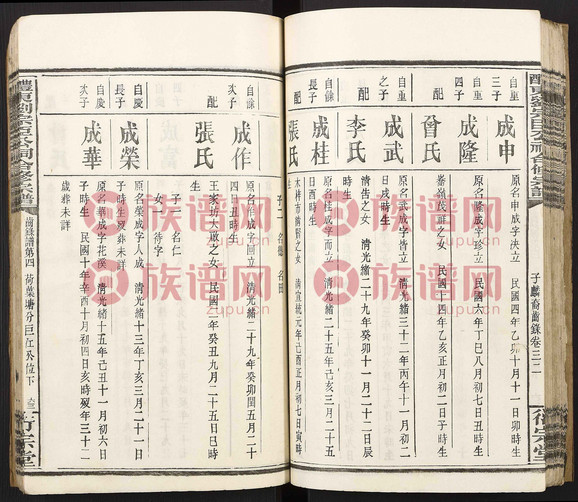 自重
三子
成申
原名申成字決立 民國四年乙卯十月十一日卯時生
自重
四子
成隆
原名隆成字珍立 民國六年丁巳八月初七日丑時生
配
曾氏
之女 民國十四年乙亥正月初二日子時生
自重
之子
成武
原名武成字皆立 清光緒三十二年丙午十一月初二
日戌時生
配
李氏
清吉之女 清光緒二十九年癸卯十一月二十二日辰
時生
自餘
長子
成桂
原名桂成字而立 清光緒二十五年己亥三月二十五
日酉時生
配
張氏
之女 清宣統元年己酉正月初七日寅時
生
子二
自餘
次子
成作
原名作成字回立 清光緒二十九年癸卯閏五月二十
四日丑時生
配
張氏
王家坊大啟之女 民國二年癸丑九月二十五日巳時
生
子一 名仁
女一 待字
自慶
長子
成榮
原名榮成字人成 清光緒十三年丁亥三月二十一日
子時生歿葬未詳
自慶
次子
成華
原名華成字花溪 清光緒十五年己丑十一月初六日
子時生 民國十年辛酉十月初四日亥時歿年三十二
歲葬未詳
齒錄譜第四
衍宗堂
族谱网
zupu.cn